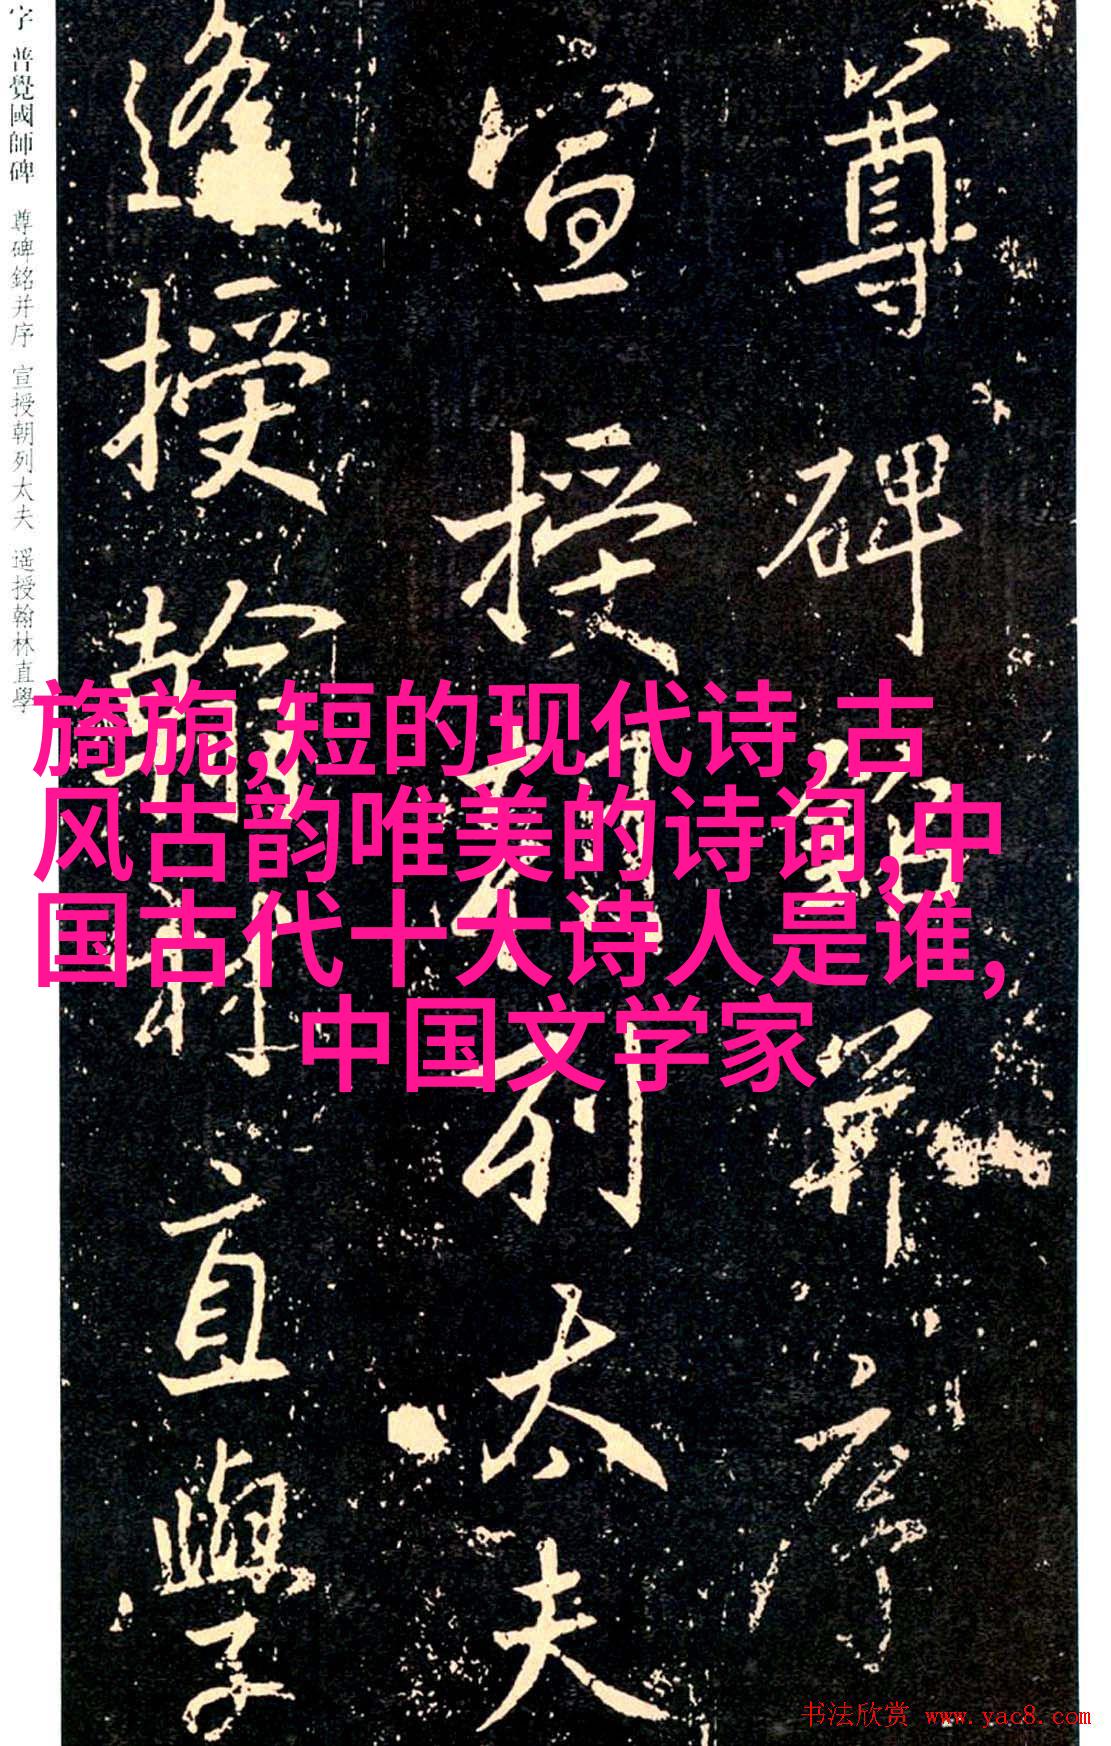 尊碑銘并序
宣授朝列太夫
遥授翰林直學
字 普覺國師碑 尊碑銘并序 宣授朝列太夫 遥授翰林直學
旖旎,短的现代诗,古
风古韵唯美的诗词,中
国古代十大诗人是谁,
中国文学家
书法欣赏 www.yac8.com